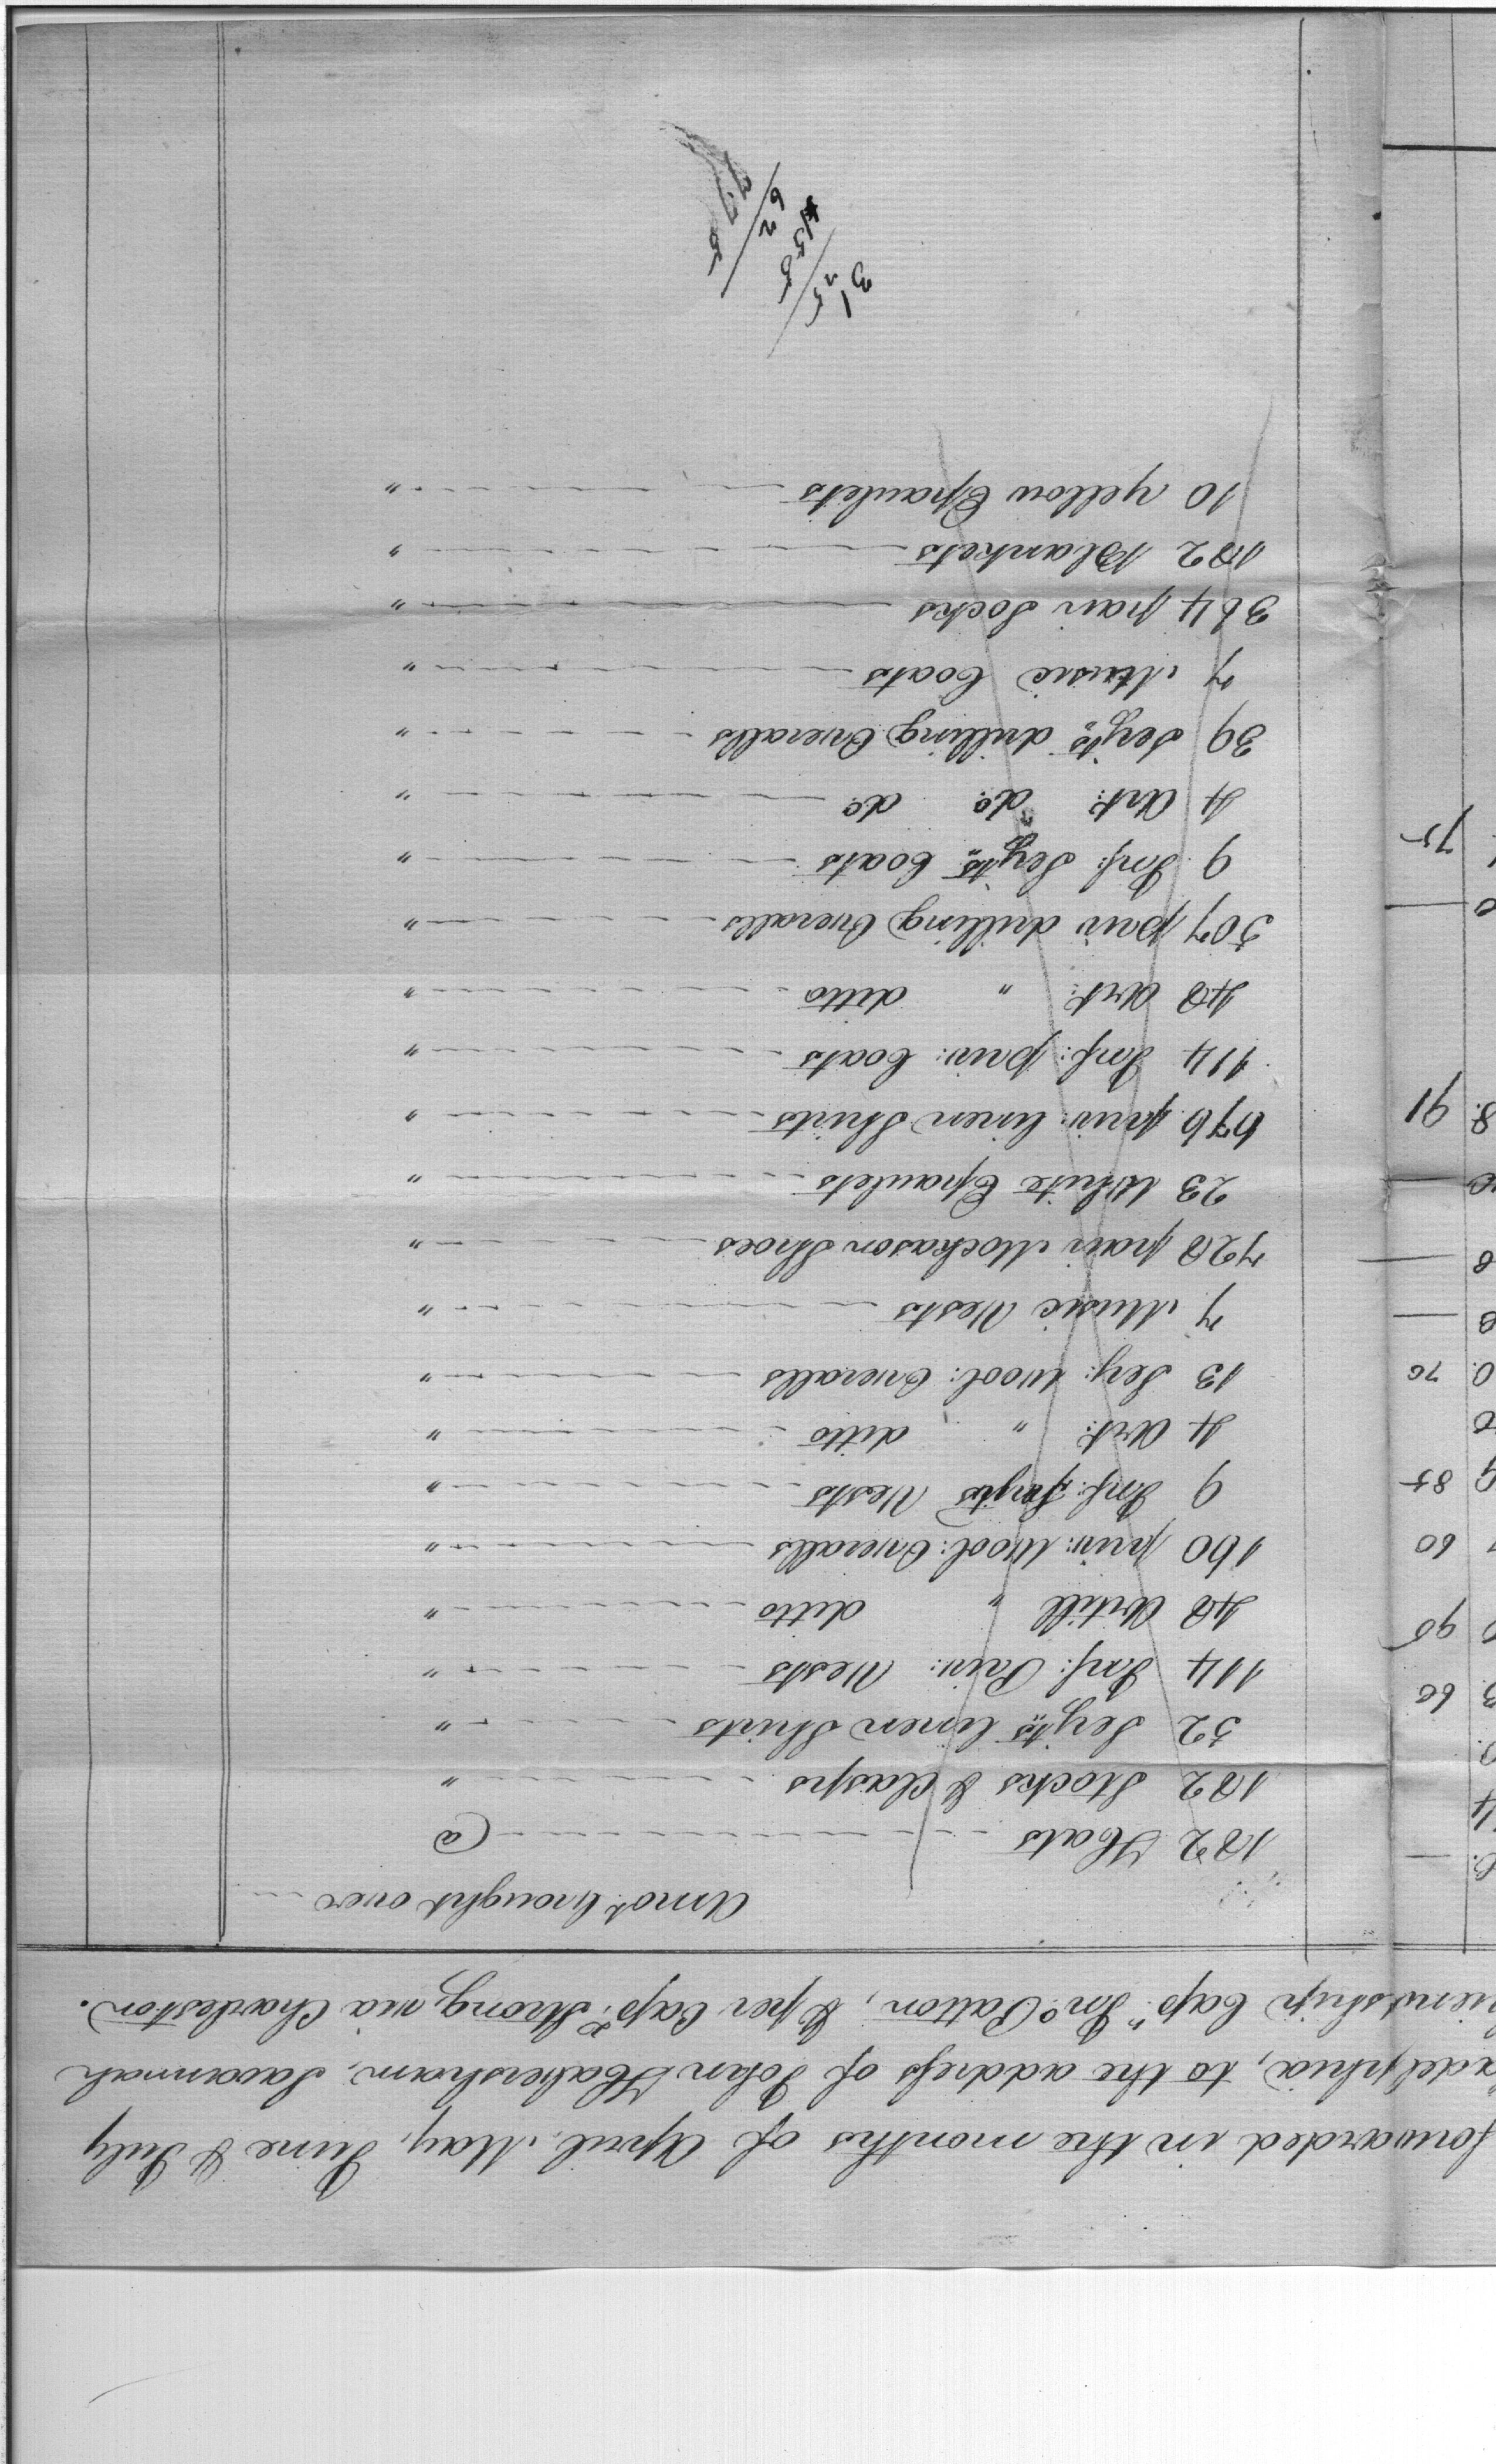 forwarded in the months of April, May, June & July
adelphia, to the address of John Habersham, Savannah
iendship Capn. Jno. Patton, & per Capt. Strong, via Charleston.
Amot. brought over
182 Hats @
182 Stocks & Clasps "
52 Serjts. linen Shirts "
114 Inf: Priv: Vests "
48 Artill " ditto "
160 priv: Wool: Overalls "
9 Inf: Serjts Vests "
4 Art: " ditto "
13 Serj: Wool: Overalls "
7 Music Vests "
728 pair Mockason Shoes "
23 White Epaulets "
676 priv: linen Shirts "
114 Inf: priv: Coats "
48 Art: " ditto "
507 pair drilling Overalls "
9 Inf: Serjts. Coats "
4 Art: do. do. "
39 Serjts. drilling Overalls "
7 Music Coats "
364 pair Socks "
182 Blankets "
10 yellow Epaulets "
60
90
60
85
70
91
75
31
155
62